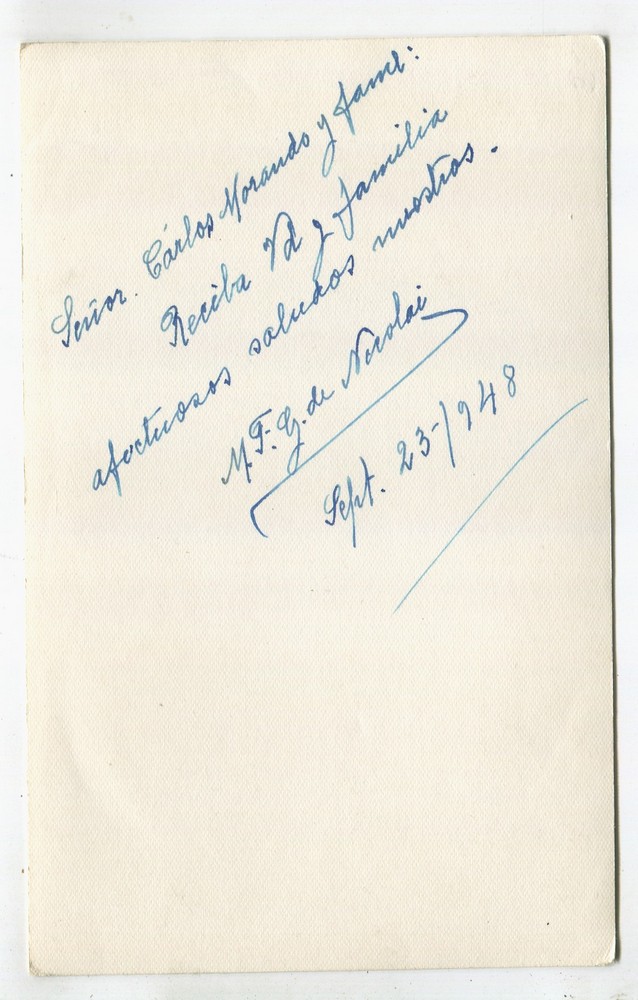 Señor. Cárlos Morando y fami:
Reciba Vd y familia
afectuosos saludos nuestros.
M. F. G. de Nicolai
Sept. 23-/948